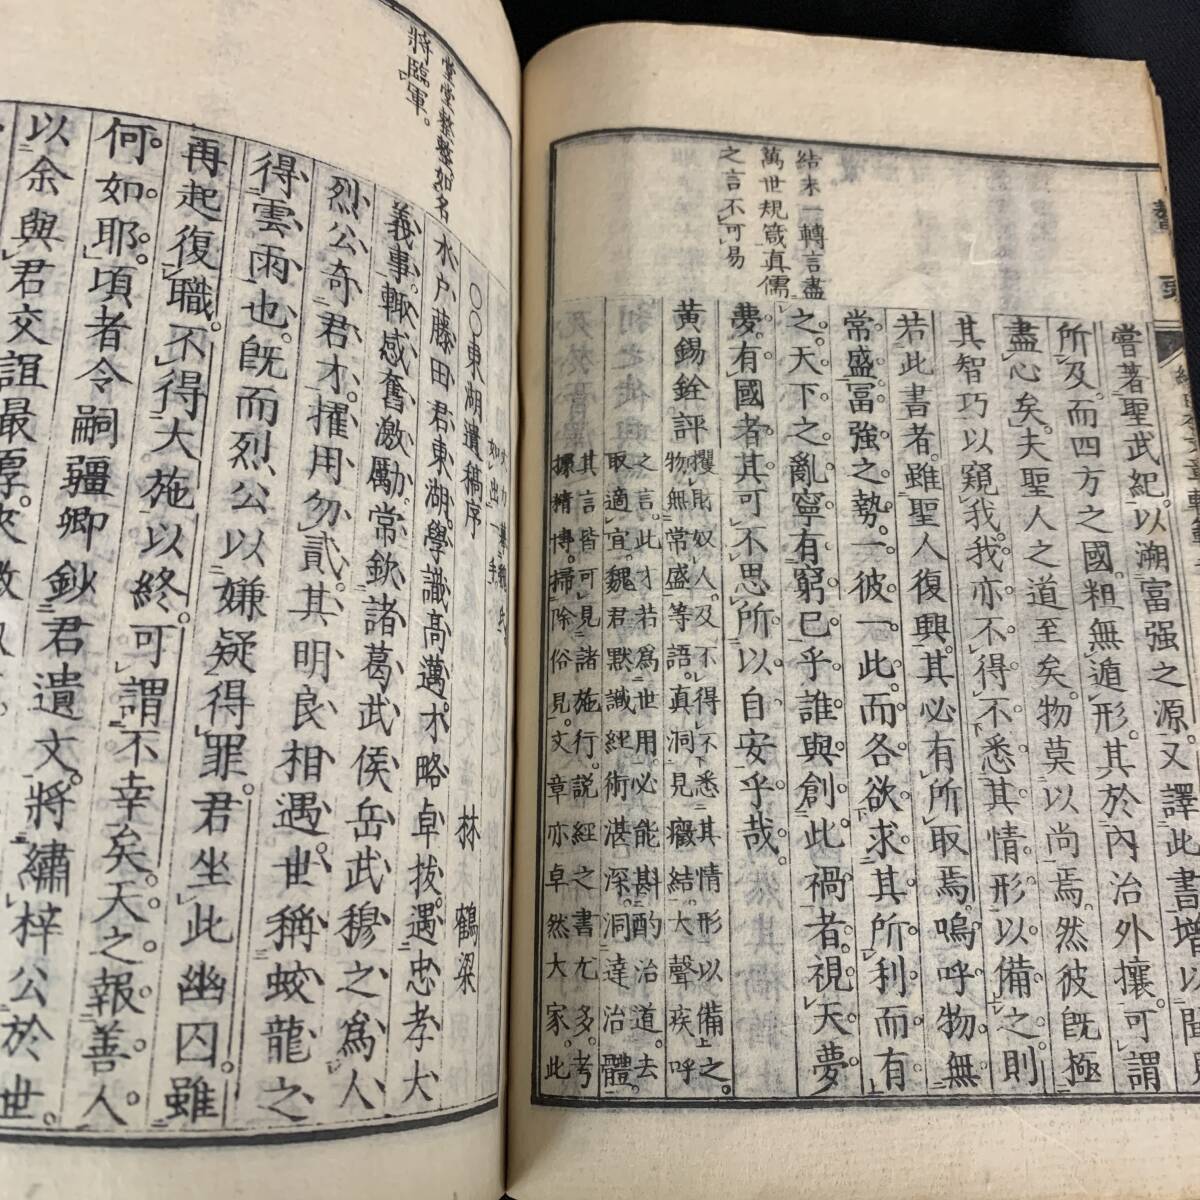 結末一轉言盡
萬世規箴真儒
之言不可易
嘗著聖武紀。以溯富强之源。又譯此書增以
所及。而四方之國。粗無遁形。其於內治外攘。可謂
盡心矣。夫聖人之道至矣。物莫以尚焉。然彼既極
其智巧以窺我。我亦不得不悉其情形以備之。則
若此書者。雖聖人復興。其必有所取焉。嗚呼物無
常盛。富強之勢。一彼一此。而各欲求其所利而有
之。天下之亂。寧有窮已乎。誰與創此禍者。視天夢
夢。有國者。其可不思所以自安乎哉。
黃錫銓評
物無常盛等語。真洞見癥結。大聲疾呼
之言。此才若爲世用。必能斟酌治道。去
取適宜。魏君默識經術湛深。洞達治體。
其言皆可見諸施行。説經之書尤多。考
據精博。掃除俗見。文章亦卓然大家。此
堂堂整整如名
將臨軍。
〇〇東湖遺稿序
林鶴梁
水戶藤田君東湖。學識高邁。才略卓拔。遇忠孝大
義事。輙感奮激勵。常欽諸葛武侯岳武穆之爲人。
烈公奇君才。擢用勿貳。其明良相遇。世稱蛟龍之
得雲雨也。既而烈公以嫌疑得罪。君坐此幽囚。雖
再起復職。不得大施以終。可謂不幸矣。天之報善人。
何如耶。頃者令嗣彊卿鈔君遺文。將繡梓公於世。
以余與君交誼最厚。